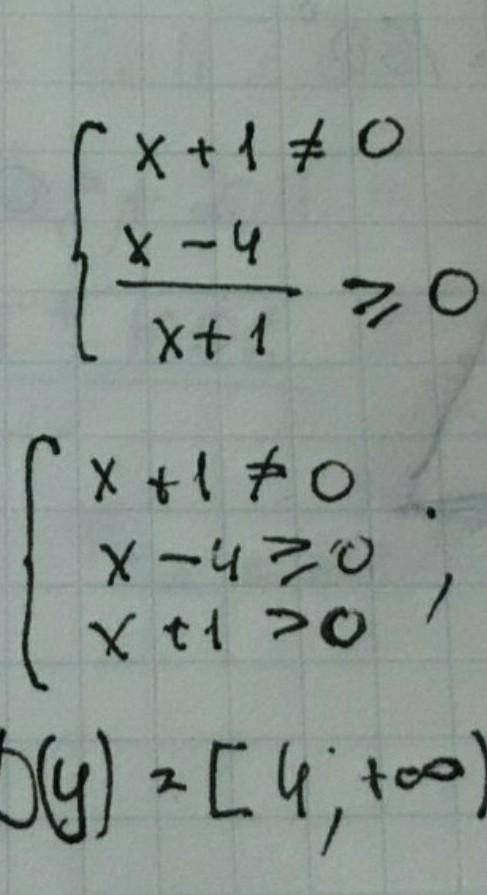 x + 1 ≠ 0
x - 4
x + 1 ≥ 0
x + 1 ≠ 0
x - 4 ≥ 0 ;
x + 1 > 0
D(y) = [4; +∞)